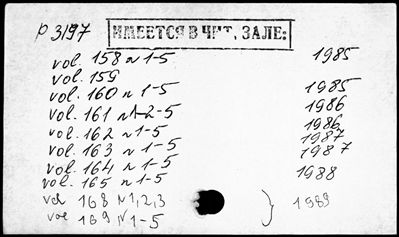 р 3197
ИМЕЕТСЯ В ЧИТ. ЗАЛЕ:
vol. 158 n 1-5 1985
vol. 159
vol. 160 n 1-5 1985
vol. 161 n 1-2-5 1986
vol. 162 n 1-5 1986
vol. 163 n 1-5 1987
vol. 164 n 1-5 1987
vol. 165 n 1-5 1988
vol 168 N 1,2,3 } 1989
vol 169 N 1-5